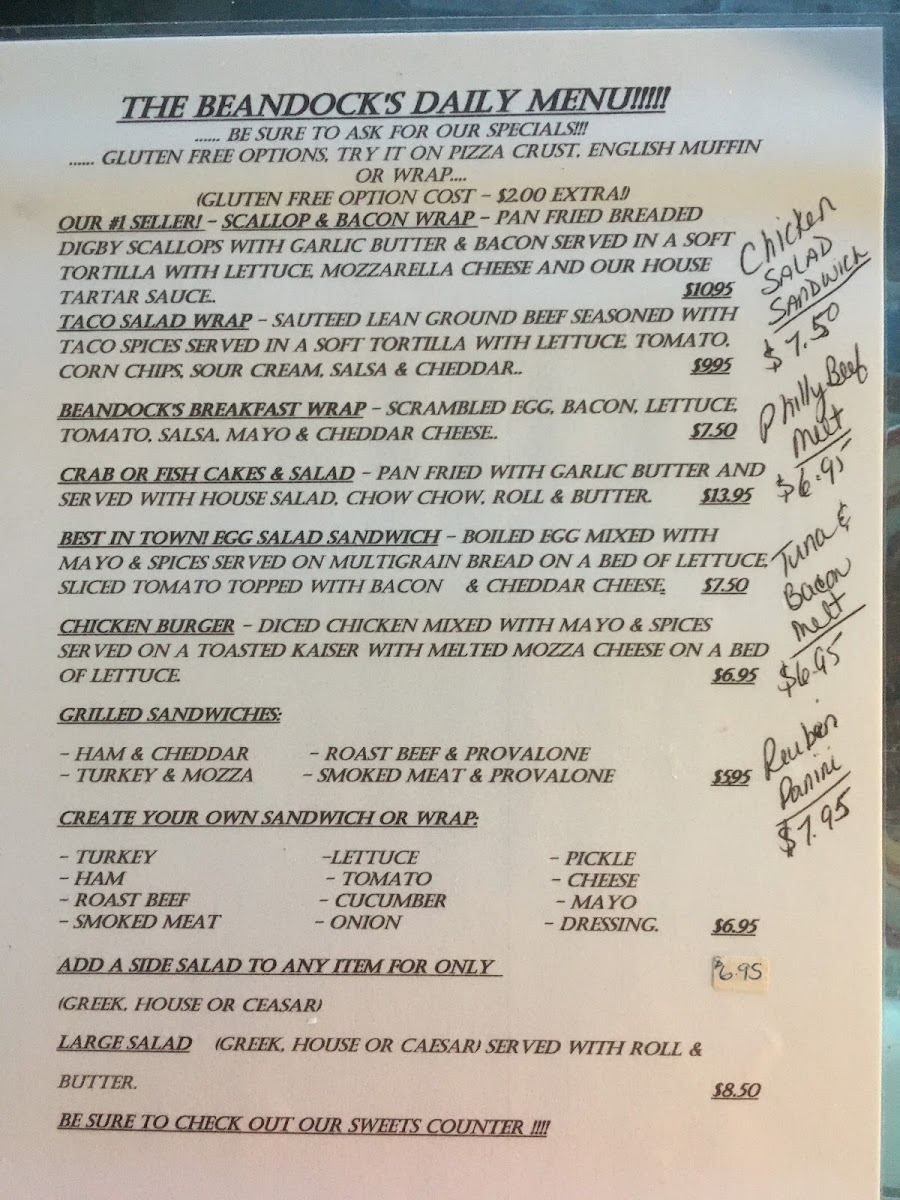 THE BEANDOCK'S DAILY MENU!!!!!
...... BE SURE TO ASK FOR OUR SPECIALS!!!
...... GLUTEN FREE OPTIONS, TRY IT ON PIZZA CRUST, ENGLISH MUFFIN
OR WRAP....
(GLUTEN FREE OPTION COST - $2.00 EXTRA!)
OUR #1 SELLER! - SCALLOP & BACON WRAP - PAN FRIED BREADED
DIGBY SCALLOPS WITH GARLIC BUTTER & BACON SERVED IN A SOFT
TORTILLA WITH LETTUCE, MOZZARELLA CHEESE AND OUR HOUSE
TARTAR SAUCE.. $10.95
TACO SALAD WRAP - SAUTEED LEAN GROUND BEEF SEASONED WITH
TACO SPICES SERVED IN A SOFT TORTILLA WITH LETTUCE, TOMATO,
CORN CHIPS, SOUR CREAM, SALSA & CHEDDAR.. $9.95
BEANDOCK'S BREAKFAST WRAP - SCRAMBLED EGG, BACON, LETTUCE,
TOMATO, SALSA, MAYO & CHEDDAR CHEESE.. $7.50
CRAB OR FISH CAKES & SALAD - PAN FRIED WITH GARLIC BUTTER AND
SERVED WITH HOUSE SALAD, CHOW CHOW, ROLL & BUTTER. $13.95
BEST IN TOWN! EGG SALAD SANDWICH - BOILED EGG MIXED WITH
MAYO & SPICES SERVED ON MULTIGRAIN BREAD ON A BED OF LETTUCE,
SLICED TOMATO TOPPED WITH BACON & CHEDDAR CHEESE. $7.50
CHICKEN BURGER - DICED CHICKEN MIXED WITH MAYO & SPICES
SERVED ON A TOASTED KAISER WITH MELTED MOZZA CHEESE ON A BED
OF LETTUCE. $6.95
GRILLED SANDWICHES:
- HAM & CHEDDAR - ROAST BEEF & PROVALONE
- TURKEY & MOZZA - SMOKED MEAT & PROVALONE $5.95
CREATE YOUR OWN SANDWICH OR WRAP:
- TURKEY -LETTUCE - PICKLE
- HAM - TOMATO - CHEESE
- ROAST BEEF - CUCUMBER - MAYO
- SMOKED MEAT - ONION - DRESSING. $6.95
ADD A SIDE SALAD TO ANY ITEM FOR ONLY $6.95
(GREEK, HOUSE OR CEASAR)
LARGE SALAD (GREEK, HOUSE OR CAESAR) SERVED WITH ROLL &
BUTTER. $8.50
BE SURE TO CHECK OUT OUR SWEETS COUNTER !!!!
Chicken
SALAD
SANDWICH
$7.50
Philly Beef
melt
$6.95
Tuna &
Bacon
melt
$6.95
Reuben
Panini
$7.95